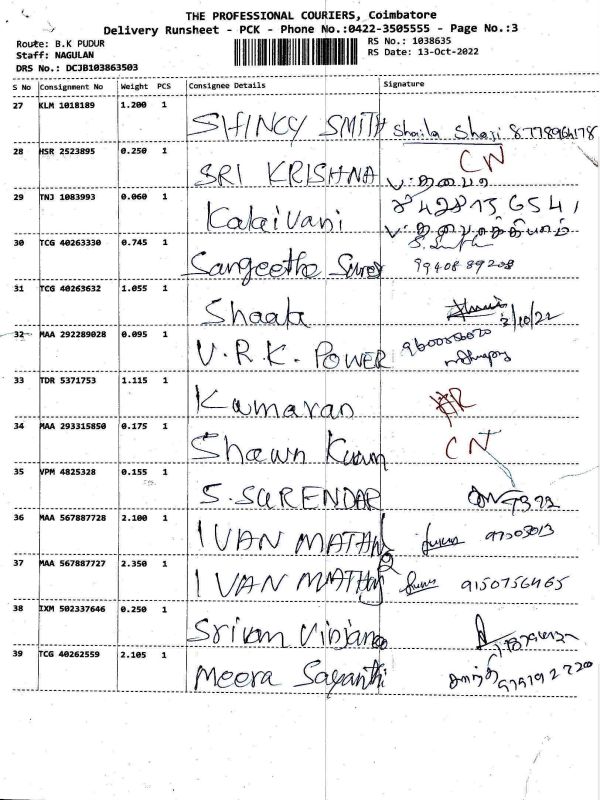 THE PROFESSIONAL COURIERS, Coimbatore
Delivery Runsheet - PCK - Phone No.:0422-3505555 - Page No.:3
Route: B.K PUDUR
RS No.: 1038635
Staff: NAGULAN
RS Date: 13-Oct-2022
DRS No.: DCJB103863503
S No Consignment No Weight PCS Consignee Details Signature
27 KLM 1018189 1.200 1 SHINCY SMITH Shaila Shaji
28 HSR 2523895 0.250 1 SRI KRISHNA CN
29 TNJ 1083993 0.060 1 Kalaivani
30 TCG 40263330 0.745 1 Sangeetha 9940889208
31 TCG 40263632 1.055 1
32 MAA 292289028 0.095 1 V.R.K. POWER
33 TDR 5371753 1.115 1 Kumaran
34 MAA 293315850 0.175 1 Shawn CN
35 VPM 4825328 0.155 1 S. SURENDAR
36 MAA 567887728 2.100 1 IVAN
37 MAA 567887727 2.350 1 IVAN 9150756465
38 IXM 502337646 0.250 1
39 TCG 40262559 2.105 1 Meera